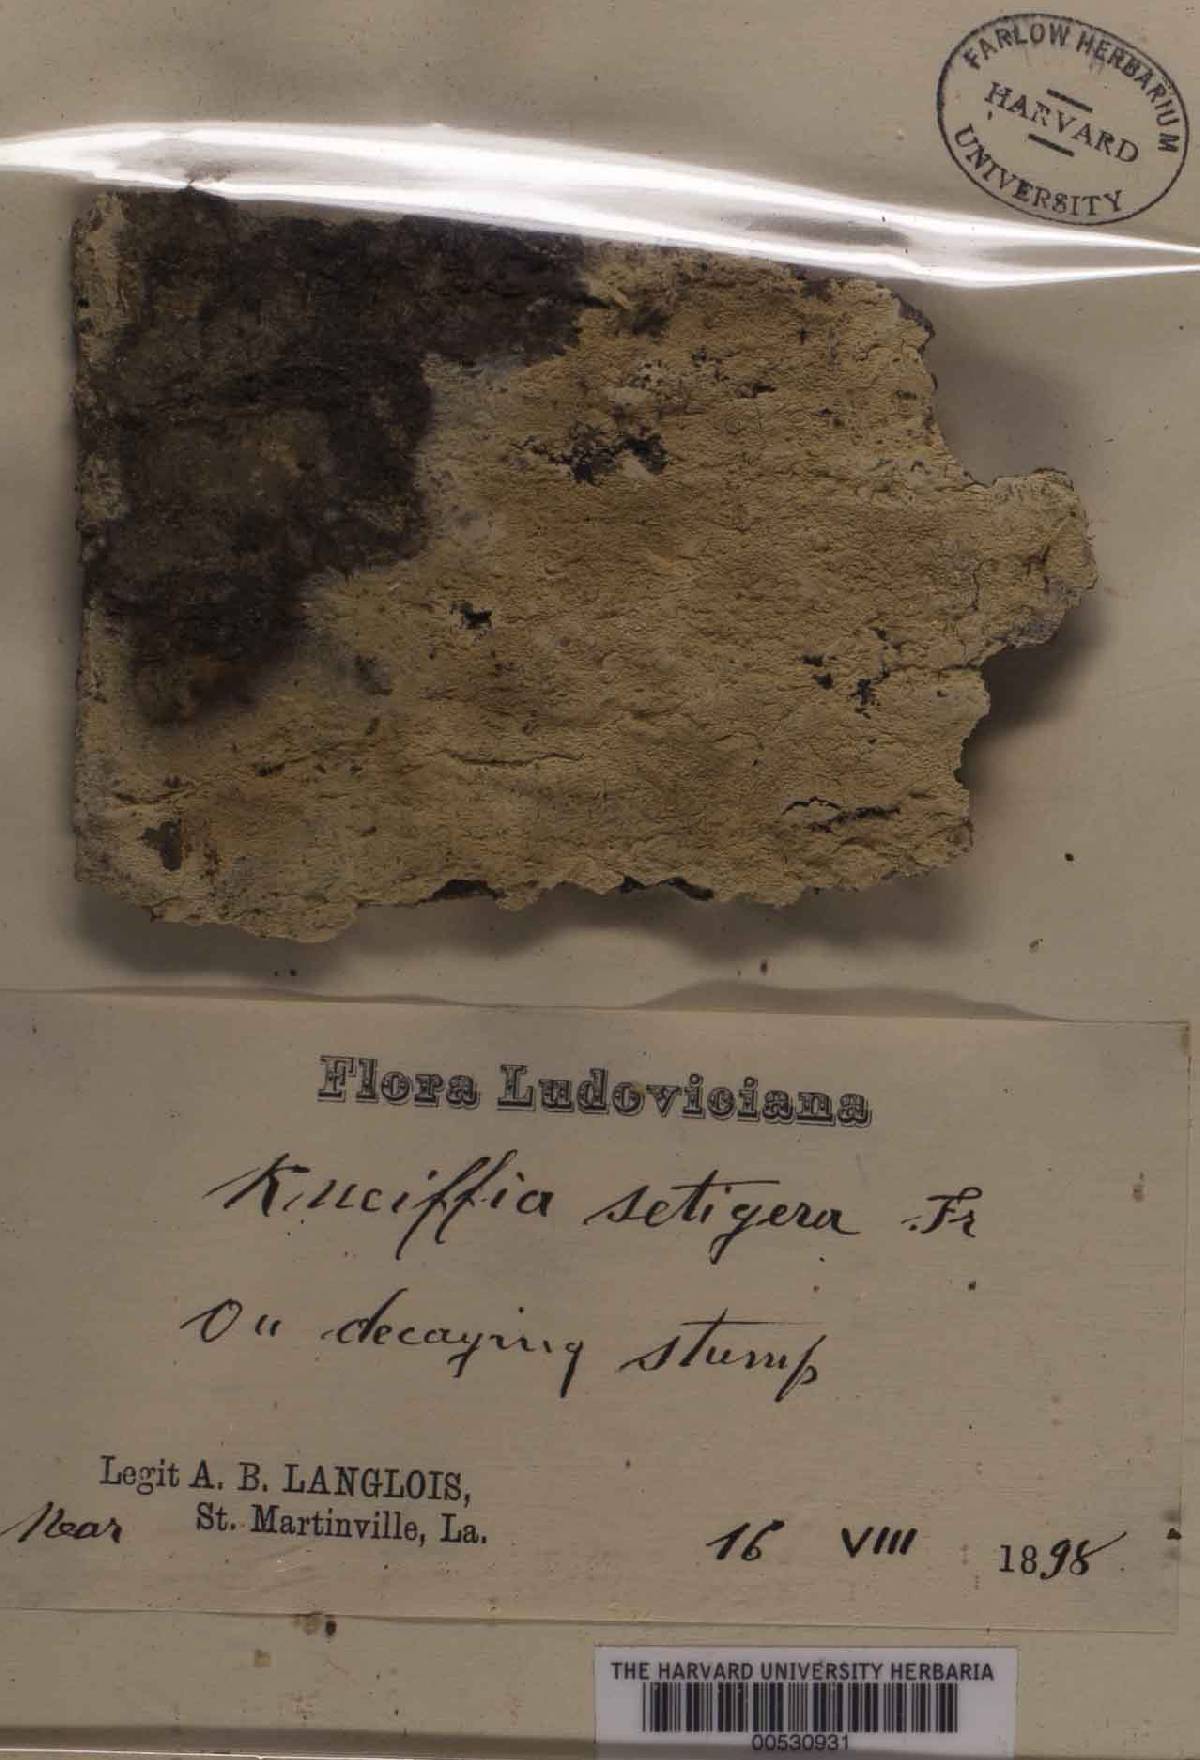 FARLOW HERBARIUM
HARVARD
UNIVERSITY
Flora Ludoviciana
Kneiffia setigera Fr
On decaying stump
Legit A. B. LANGLOIS,
Near St. Martinville, La.
16 VIII 1898
THE HARVARD UNIVERSITY HERBARIA
00530931